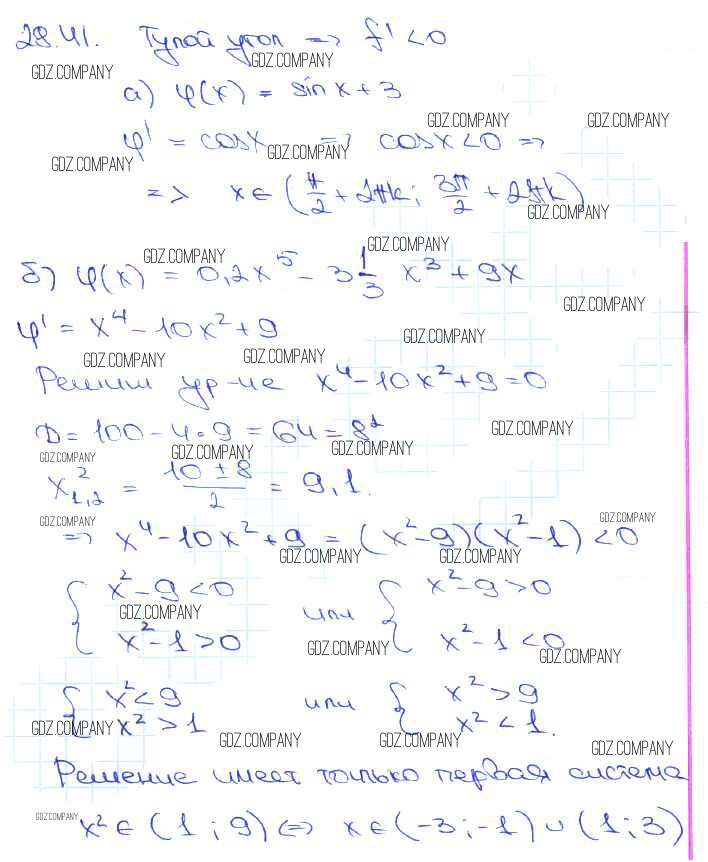 28.41. Тупой угол => f' < 0
а) φ(x) = sin x + 3
φ' = cos x => cos x < 0 =>
=> x ∈ (π/2 + 2πk; 3π/2 + 2πk)
б) φ(x) = 0,2x⁵ - 3 1/3 x³ + 9x
φ' = x⁴ - 10x² + 9
Решим ур-ие x⁴ - 10x² + 9 = 0
D = 100 - 4·9 = 64 = 8²
x²₁,₂ = (10 ± 8)/2 = 9, 1.
=> x⁴ - 10x² + 9 = (x² - 9)(x² - 1) < 0
{ x² - 9 < 0 или { x² - 9 > 0
x² - 1 > 0 x² - 1 < 0
{ x² < 9 или { x² > 9
x² > 1 x² < 1.
Решение имеет только первая система
x² ∈ (1; 9) <=> x ∈ (-3; -1) ∪ (1; 3)
GDZ.COMPANY